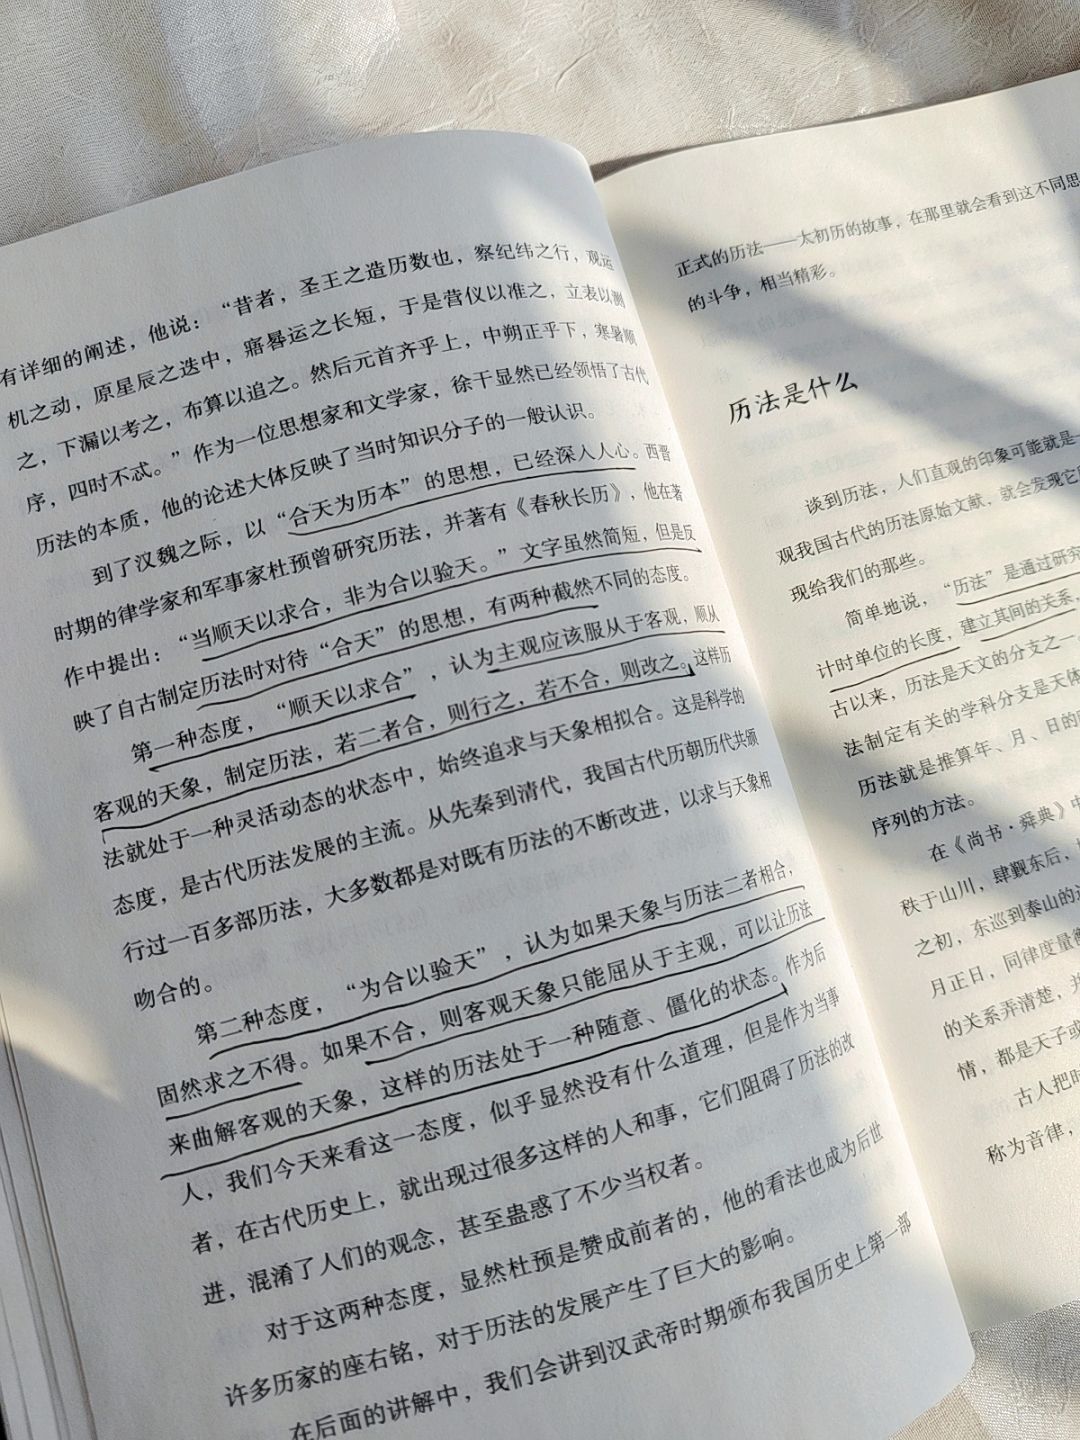 有详细的阐述，他说：“昔者，圣王之造历数也，察纪纬之行，观运
机之动，原星辰之迭中，寤晷运之长短，于是营仪以准之，立表以测
之，下漏以考之，布算以追之。然后元首齐乎上，中朔正乎下，寒暑顺
序，四时不忒。”作为一位思想家和文学家，徐干显然已经领悟了古代
历法的本质，他的论述大体反映了当时知识分子的一般认识。
到了汉魏之际，以“合天为历本”的思想，已经深入人心。西晋
时期的律学家和军事家杜预曾研究历法，并著有《春秋长历》，他在著
作中提出：“当顺天以求合，非为合以验天。”文字虽然简短，但是反
映了自古制定历法时对待“合天”的思想，有两种截然不同的态度。
第一种态度，“顺天以求合”，认为主观应该服从于客观，顺从
客观的天象，制定历法，若二者合，则行之，若不合，则改之。这样历
法就处于一种灵活动态的状态中，始终追求与天象相拟合。这是科学的
态度，是古代历法发展的主流。从先秦到清代，我国古代历朝历代共颁
行过一百多部历法，大多数都是对既有历法的不断改进，以求与天象相
吻合的。
第二种态度，“为合以验天”，认为如果天象与历法二者相合，
固然求之不得。如果不合，则客观天象只能屈从于主观，可以让历法
来曲解客观的天象，这样的历法处于一种随意、僵化的状态。作为后
人，我们今天来看这一态度，似乎显然没有什么道理，但是作为当事
者，在古代历史上，就出现过很多这样的人和事，它们阻碍了历法的改
进，混淆了人们的观念，甚至蛊惑了不少当权者。
对于这两种态度，显然杜预是赞成前者的，他的看法也成为后世
许多历家的座右铭，对于历法的发展产生了巨大的影响。
在后面的讲解中，我们会讲到汉武帝时期颁布我国历史上第一部
正式的历法——太初历的故事，在那里就会看到这不同思
的斗争，相当精彩。
历法是什么
谈到历法，人们直观的印象可能就是一
观我国古代的历法原始文献，就会发现它
现给我们的那些。
简单地说，“历法”是通过研究
计时单位的长度，建立其间的关系，
古以来，历法是天文的分支之一。
法制定有关的学科分支是天体
历法就是推算年、月、日的时
序列的方法。
在《尚书·舜典》中
秩于山川，肆觐东后，
之初，东巡到泰山的
月正日，同律度量衡
的关系弄清楚，并
情，都是天子或
古人把时
称为音律，